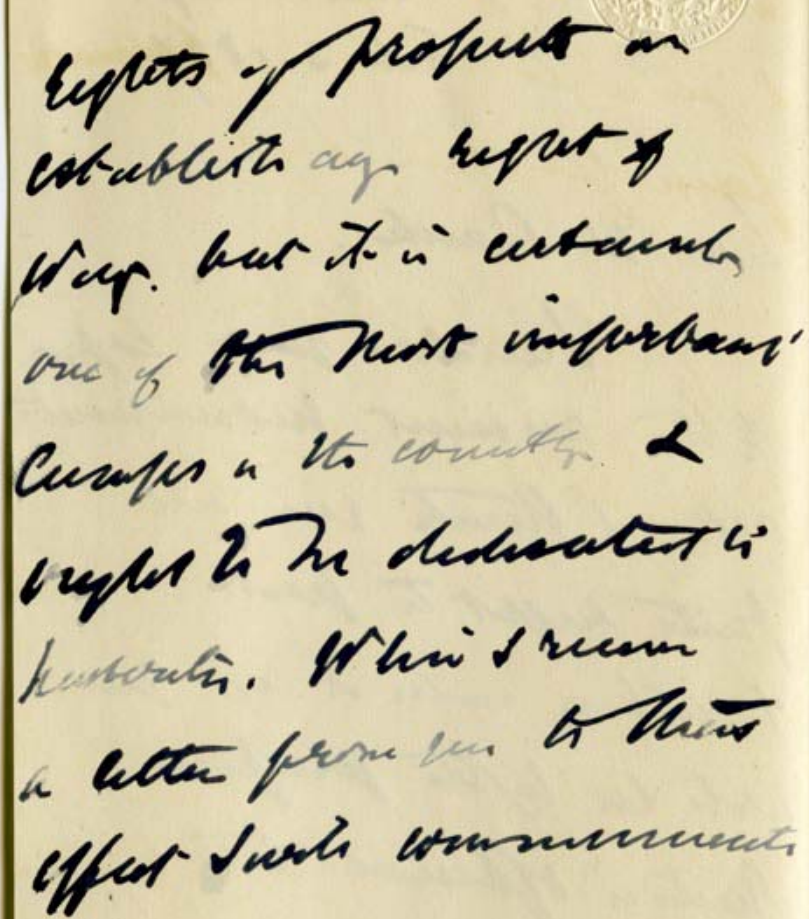 rights of property or
establish any right of
Way. but it is certainly
one of the most important
Camps in the country &
ought to be dedicated to
When I receive
a letter from you to this
effect I will communicate